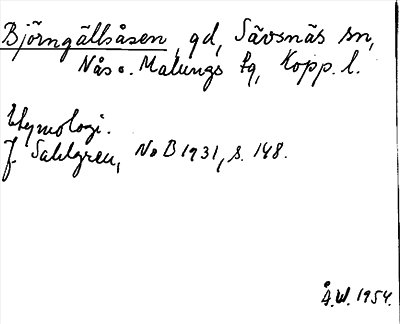 Björngällsåsen, gd, Sävsnäs sn,
Nås o. Malungs tg, Kopp. l.
Etymologi.
J. Sahlgren, NoB 1931, s. 148.
Å.W. 1954.